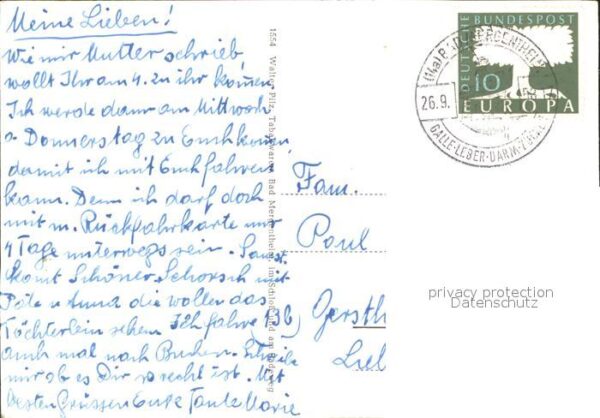 Meine Lieben!
Wie mir Mutter schrieb,
wollt Ihr am 4. zu ihr kommen
Ich werde dann am Mittwoch
o Donnerstag zu Euch kommen,
damit ich mit Euch fahren
kann. Denn ich darf doch
mit m. Rückfahrkarte nur
4 Tage unterwegs sein. Sonst
komt Schöner Schorsch mit
u Anna die wollen das
Töchterlein sehen. Ich fahre
auch mal nach Buchen. Schreibe
mir ob es Dir so recht ist. Mit
besten Grüssen Eure Tante Marie
1554 Walter Pilz, Tabakwaren, Bad Mergentheim, im Schloß und am Bodenweg
Fam.
Paul
(13a) Gersth
Lie
DEUTSCHE BUNDESPOST
10
EUROPA
(14a) BAD MERGENTHEIM
26.9.
GALLE·LEBER·DARM·ZUCKER
privacy protection
Datenschutz